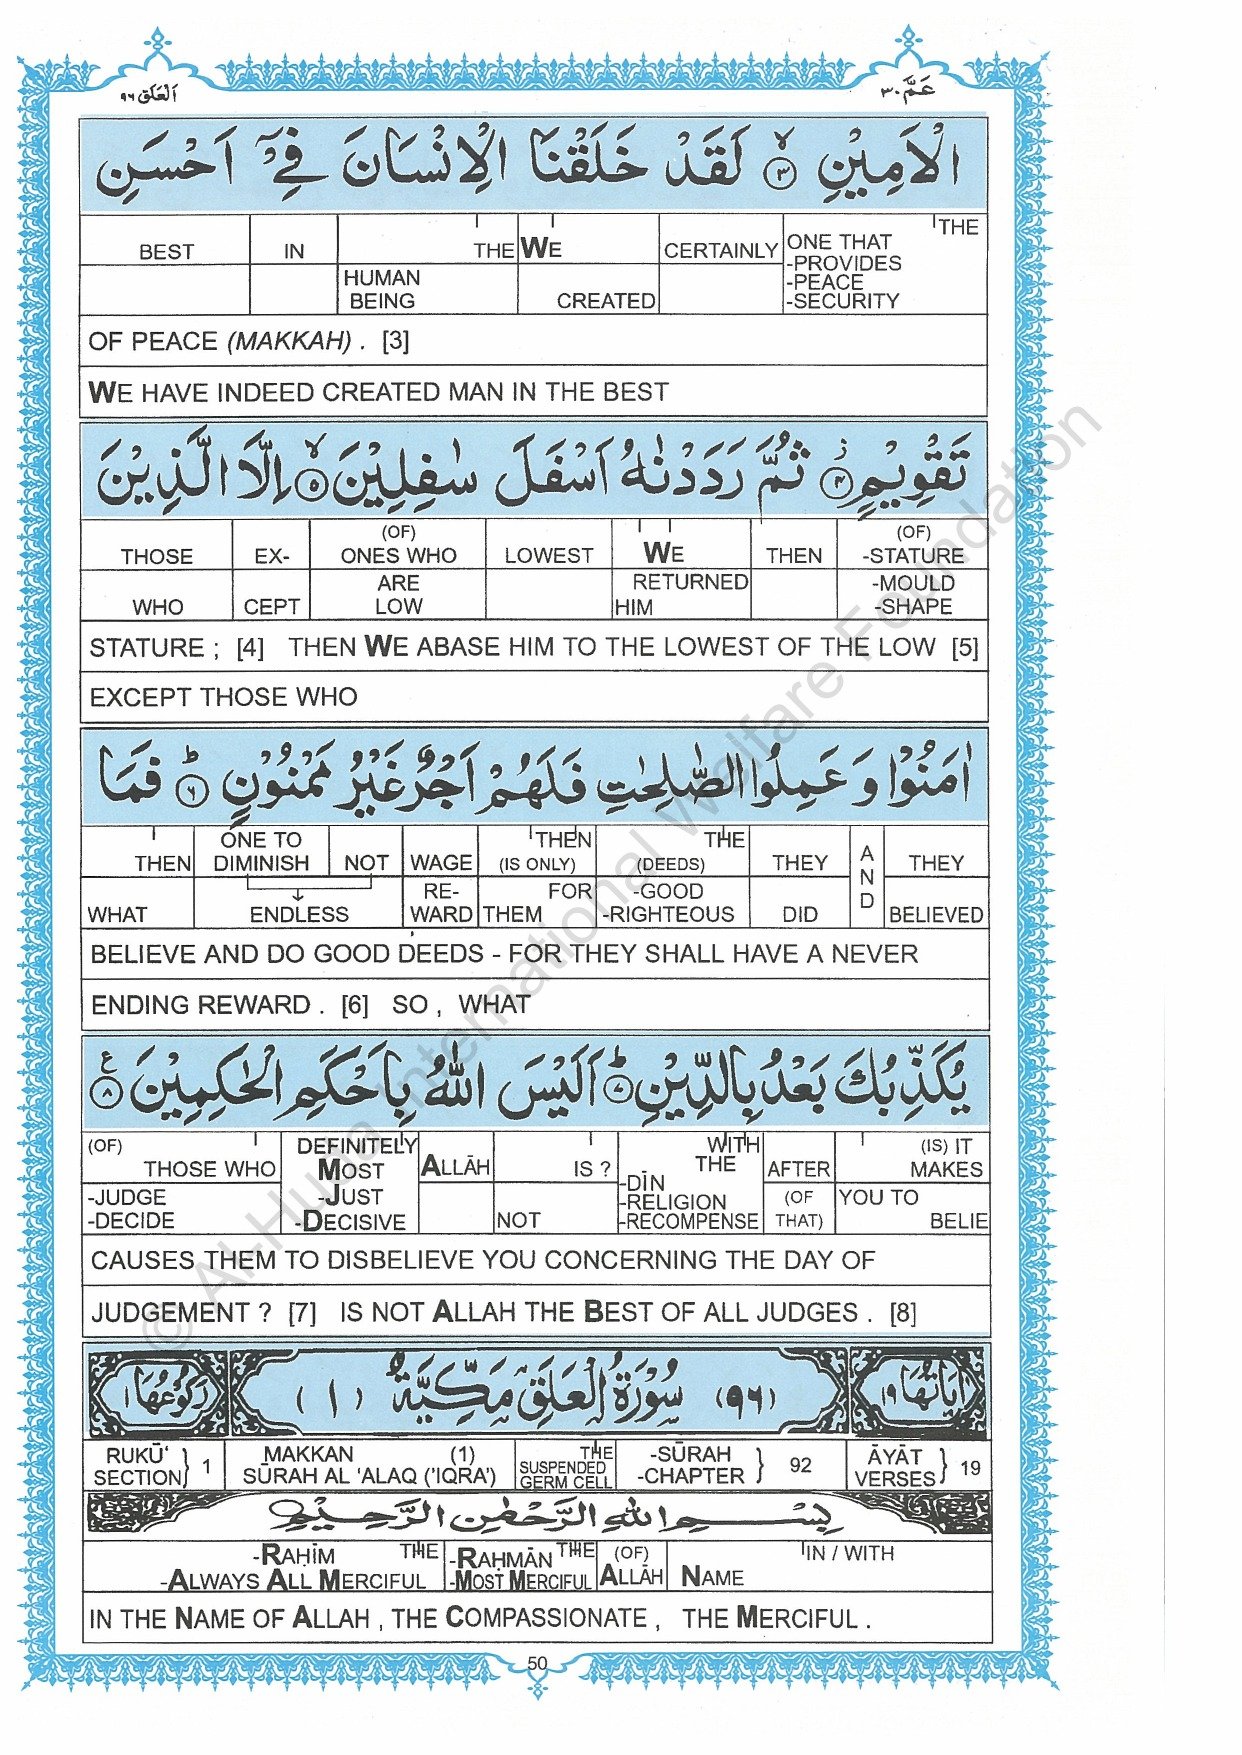 اَلْعَلَق ٩٦ عَمَّ ٣٠
الْاَمِيْنِ ۙ﴿٣﴾ لَقَدْ خَلَقْنَا الْاِنْسَانَ فِيْۤ اَحْسَنِ
BEST IN THE WE CERTAINLY ONE THAT THE
HUMAN BEING CREATED -PROVIDES -PEACE -SECURITY
OF PEACE (MAKKAH) . [3]
WE HAVE INDEED CREATED MAN IN THE BEST
تَقْوِيْمٍ ۫﴿٤﴾ ثُمَّ رَدَدْنٰهُ اَسْفَلَ سٰفِلِيْنَ ۙ﴿٥﴾ اِلَّا الَّذِيْنَ
THOSE EX- (OF) ONES WHO LOWEST WE THEN (OF) -STATURE
WHO CEPT ARE LOW RETURNED HIM -MOULD -SHAPE
STATURE ; [4] THEN WE ABASE HIM TO THE LOWEST OF THE LOW [5]
EXCEPT THOSE WHO
اٰمَنُوْا وَ عَمِلُوا الصّٰلِحٰتِ فَلَهُمْ اَجْرٌ غَيْرُ مَمْنُوْنٍ ؕ﴿٦﴾ فَمَا
THEN ONE TO DIMINISH NOT WAGE THEN (IS ONLY) THE (DEEDS) THEY AND THEY
WHAT ENDLESS RE- WARD FOR THEM -GOOD -RIGHTEOUS DID BELIEVED
BELIEVE AND DO GOOD DEEDS - FOR THEY SHALL HAVE A NEVER
ENDING REWARD . [6] SO , WHAT
يُكَذِّبُكَ بَعْدُ بِالدِّيْنِ ؕ﴿٧﴾ اَلَيْسَ اللّٰهُ بِاَحْكَمِ الْحٰكِمِيْنَ ﴿٨﴾ ع
(OF) THOSE WHO DEFINITELY MOST ALLĀH IS ? WITH THE AFTER (IS) IT MAKES
-JUDGE -DECIDE -JUST -DECISIVE NOT -DĪN -RELIGION -RECOMPENSE (OF THAT) YOU TO BELIE
CAUSES THEM TO DISBELIEVE YOU CONCERNING THE DAY OF
JUDGEMENT ? [7] IS NOT ALLAH THE BEST OF ALL JUDGES . [8]
اٰيَاتُهَا ١٩ (٩٦) سُوْرَةُ الْعَلَقِ مَكِّيَّةٌ (١) رُكُوْعُهَا ١
RUKŪ‘ SECTION } 1 MAKKAN (1) SŪRAH AL 'ALAQ ('IQRA’) THE SUSPENDED GERM CELL -SŪRAH -CHAPTER } 92 ĀYĀT VERSES } 19
بِسْمِ اللهِ الرَّحْمٰنِ الرَّحِيْمِ
-RAḤĪM THE -RAḤMĀN THE (OF) IN / WITH
-ALWAYS ALL MERCIFUL -MOST MERCIFUL ALLĀH NAME
IN THE NAME OF ALLAH , THE COMPASSIONATE , THE MERCIFUL .
50
© Al-Huda International Welfare Foundation